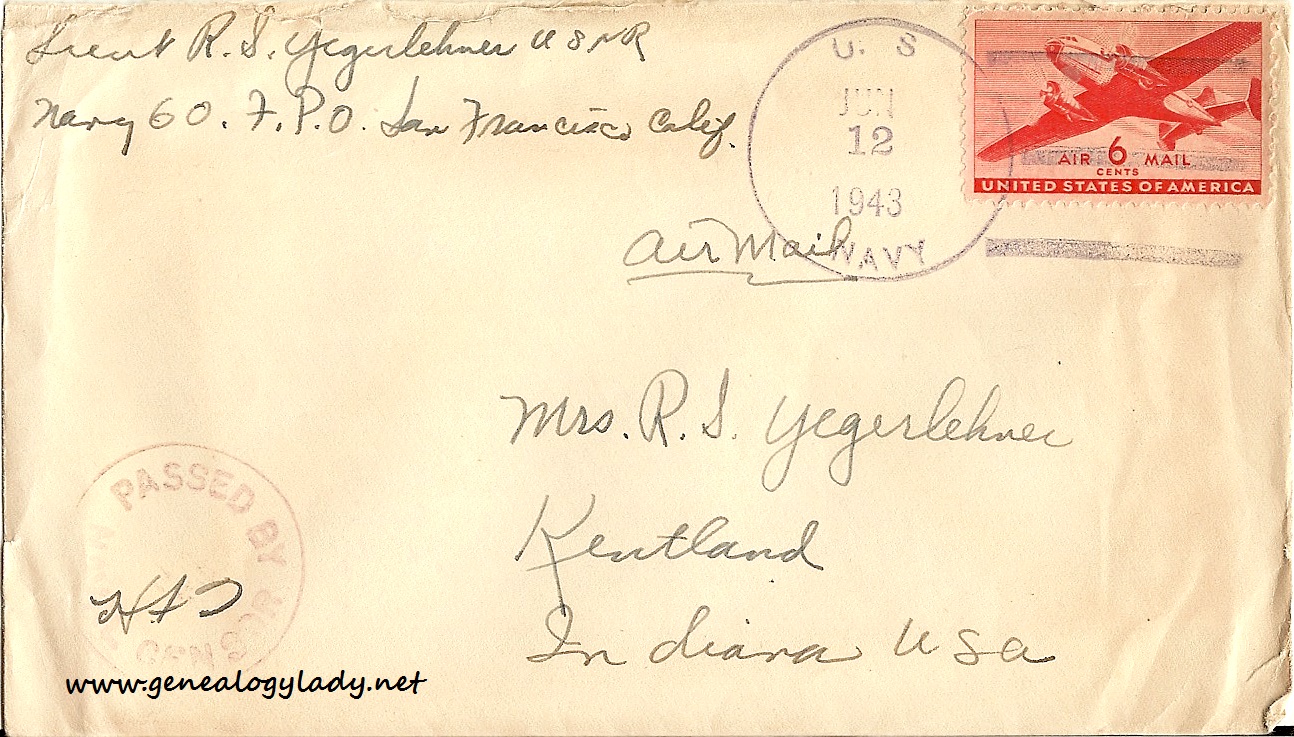 Lieut R. S. Yegerlehner USNR
Navy 60. F.P.O. San Francisco Calif.
U. S.
JUN
12
1943
NAVY
AIR 6 MAIL
CENTS
UNITED STATES OF AMERICA
Air Mail
Mrs. R. S. Yegerlehner
Kentland
Indiana USA
PASSED BY
CENSOR
www.genealogylady.net